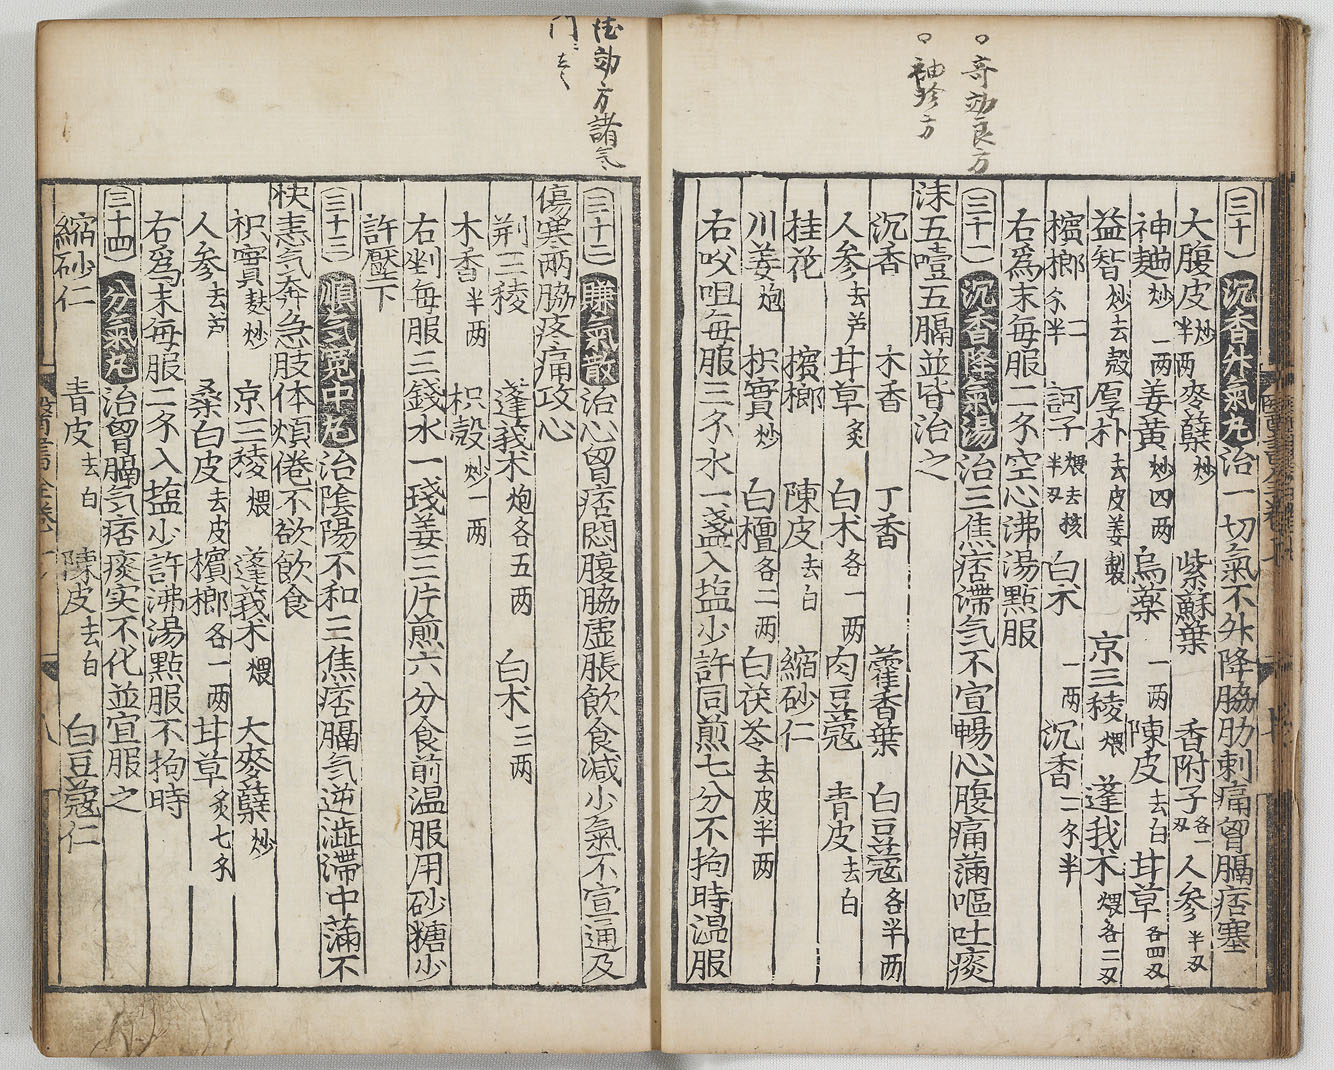 ○奇効良方
○袖珍方
三十 沉香升氣丸治一切氣不升降脇肋刺痛胷膈痞塞
大腹皮炒半两 麥蘖炒 紫蘇葉 香附子各一刄 人参半刄
神麯炒一两 姜黄炒四两 烏薬一两 陳皮去白 甘草各四刄
益智炒去殼 厚朴去皮姜製 京三稜煨 蓬我术煨各二刄
檳榔二尒半 訶子煨去核半刄 白术一两 沉香一尒半
右爲末每服二尒空心沸湯點服
三十一 沉香降氣湯治三焦痞滯気不宣暢心腹痛滿嘔吐痰
沫五噎五膈並皆治之
沉香 木香 丁香 藿香葉 白豆蔻各半两
人参去芦 甘草炙 白术各一两 肉豆蔻 青皮去白
桂花 檳榔 陳皮去白 縮砂仁
川姜炮 枳實炒 白檀各二两 白茯苓去皮半两
右㕮咀每服三尒水一盞入塩少許同煎七分不拘時温服
得効方諸気
門ニ去く
三十二 賺氣散治心胷痞悶腹脇虚脹飲食減少氣不宣通及
傷寒両脇疼痛攻心
荆三稜 蓬莪术炮各五两 白术三两
木香半两 枳殼炒一两
右剉每服三錢水一琖姜三片煎六分食前温服用砂糖少
許壓下
三十三 順気寛中丸治陰陽不和三焦痞膈気逆澁滯中滿不
快恚気奔急肢体煩倦不欲飲食
枳實麸炒 京三稜煨 蓬莪术煨 大麥蘖炒
人参去芦 桑白皮去皮 檳榔各一两 甘草炙七尒
右爲末每服二尒入塩少許沸湯點服不拘時
三十四 分氣丸治胷膈気痞痰实不化並宜服之
縮砂仁 青皮去白 陳皮去白 白豆蔻仁